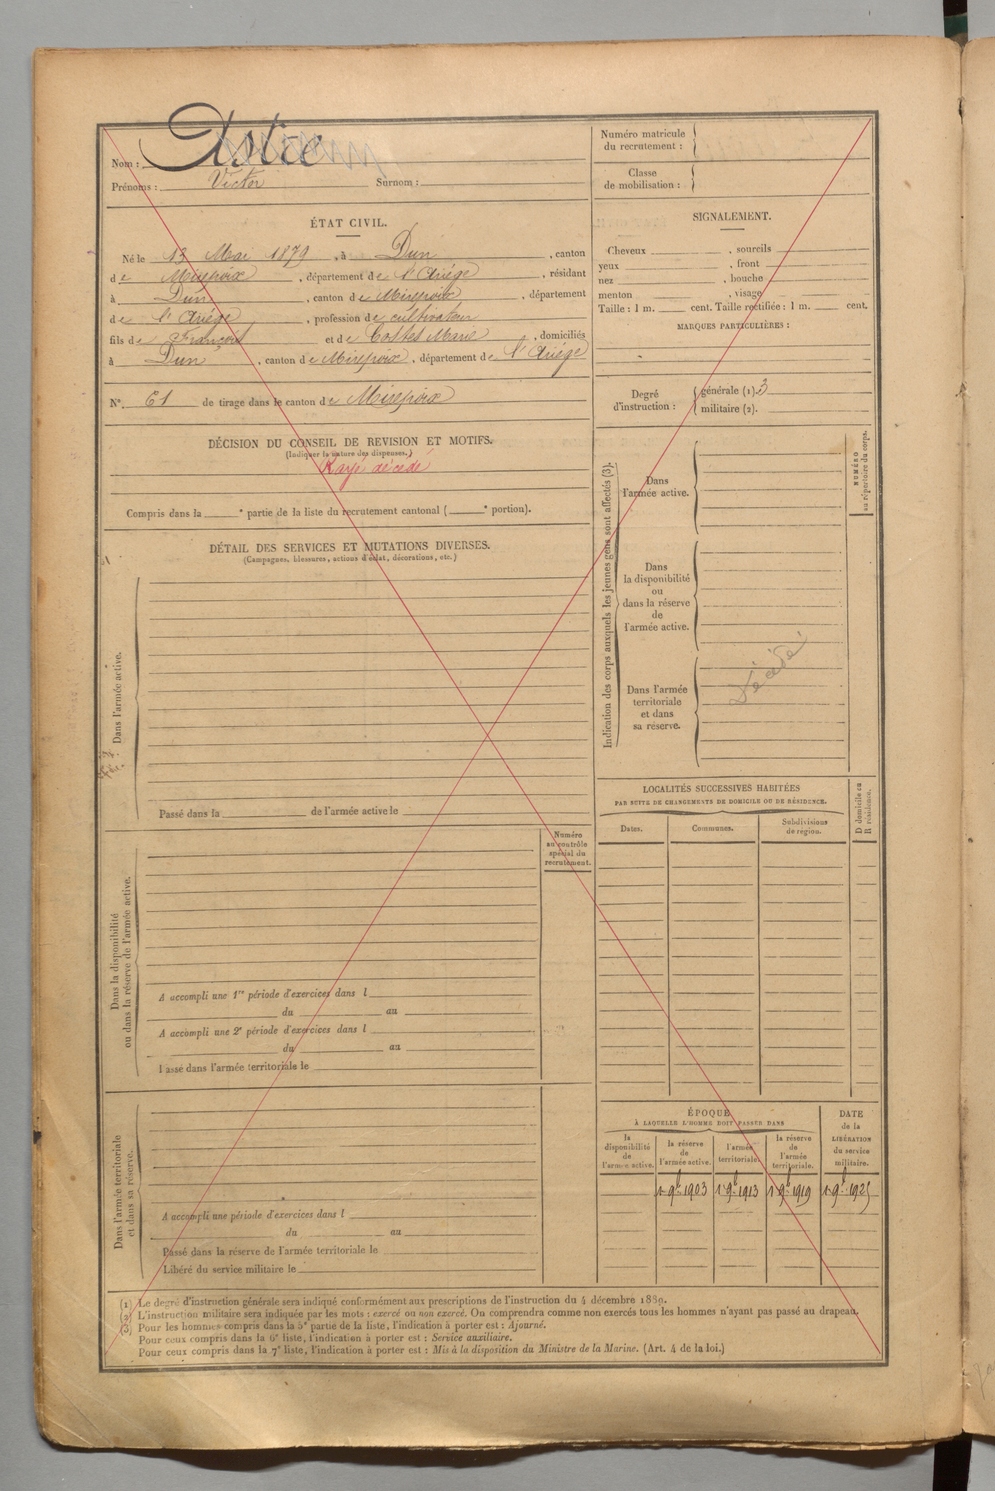 Nom : Astre
Prénoms : Victor Surnom :
ÉTAT CIVIL.
Né le 13 Mai 1879, à Dun, canton
de Mirepoix, département de l'Ariége, résidant
à Dun, canton de Mirepoix, département
de l'Ariége, profession de cultivateur
fils de François et de Costes Marie, domiciliés
à Dun, canton de Mirepoix, département de l'Ariége
N° 61 de tirage dans le canton de Mirepoix
DÉCISION DU CONSEIL DE REVISION ET MOTIFS.
(Indiquer la nature des dispenses.)
Rayé décédé
Compris dans la ° partie de la liste du recrutement cantonal ( ° portion).
DÉTAIL DES SERVICES ET MUTATIONS DIVERSES.
(Campagnes, blessures, actions d'éclat, décorations, etc.)
Dans l'armée active.
Passé dans la de l'armée active le
Numéro
au contrôle
spécial du
recrutement.
Dans la disponibilité
ou dans la réserve de l'armée active.
A accompli une 1re période d'exercices dans l
du au
A accompli une 2e période d'exercices dans l
du au
Passé dans l'armée territoriale le
Dans l'armée territoriale
et dans sa réserve.
A accompli une période d'exercices dans l
du au
Passé dans la réserve de l'armée territoriale le
Libéré du service militaire le
Numéro matricule
du recrutement :
Classe
de mobilisation :
SIGNALEMENT.
Cheveux , sourcils
yeux , front
nez , bouche
menton , visage
Taille : 1 m. cent. Taille rectifiée : 1 m. cent.
MARQUES PARTICULIÈRES :
Degré
d'instruction :
générale (1). 3
militaire (2).
Indication des corps auxquels les jeunes gens sont affectés (3).
Dans
l'armée active.
Dans
la disponibilité
ou
dans la réserve
de
l'armée active.
Dans l'armée
territoriale
et dans
sa réserve.
décédé
NUMÉRO
au répertoire du corps.
LOCALITÉS SUCCESSIVES HABITÉES
PAR SUITE DE CHANGEMENTS DE DOMICILE OU DE RÉSIDENCE.
Dates. Communes. Subdivisions
de région.
D domicile ou
R résidence.
ÉPOQUE
À LAQUELLE L'HOMME DOIT PASSER DANS
la
disponibilité
de
l'armée active.
la réserve
de
l'armée active.
l'armée
territoriale.
la réserve
de
l'armée
territoriale.
DATE
de la
LIBÉRATION
du service
militaire.
1er 9b 1903 1er 9b 1913 1er 9b 1919 1er 9b 1925
(1) Le degré d'instruction générale sera indiqué conformément aux prescriptions de l'instruction du 4 décembre 1889.
(2) L'instruction militaire sera indiquée par les mots : exercé ou non exercé. On comprendra comme non exercés tous les hommes n'ayant pas passé au drapeau.
(3) Pour les hommes compris dans la 5e partie de la liste, l'indication à porter est : Ajourné.
Pour ceux compris dans la 6e liste, l'indication à porter est : Service auxiliaire.
Pour ceux compris dans la 7e liste, l'indication à porter est : Mis à la disposition du Ministre de la Marine. (Art. 4 de la loi.)